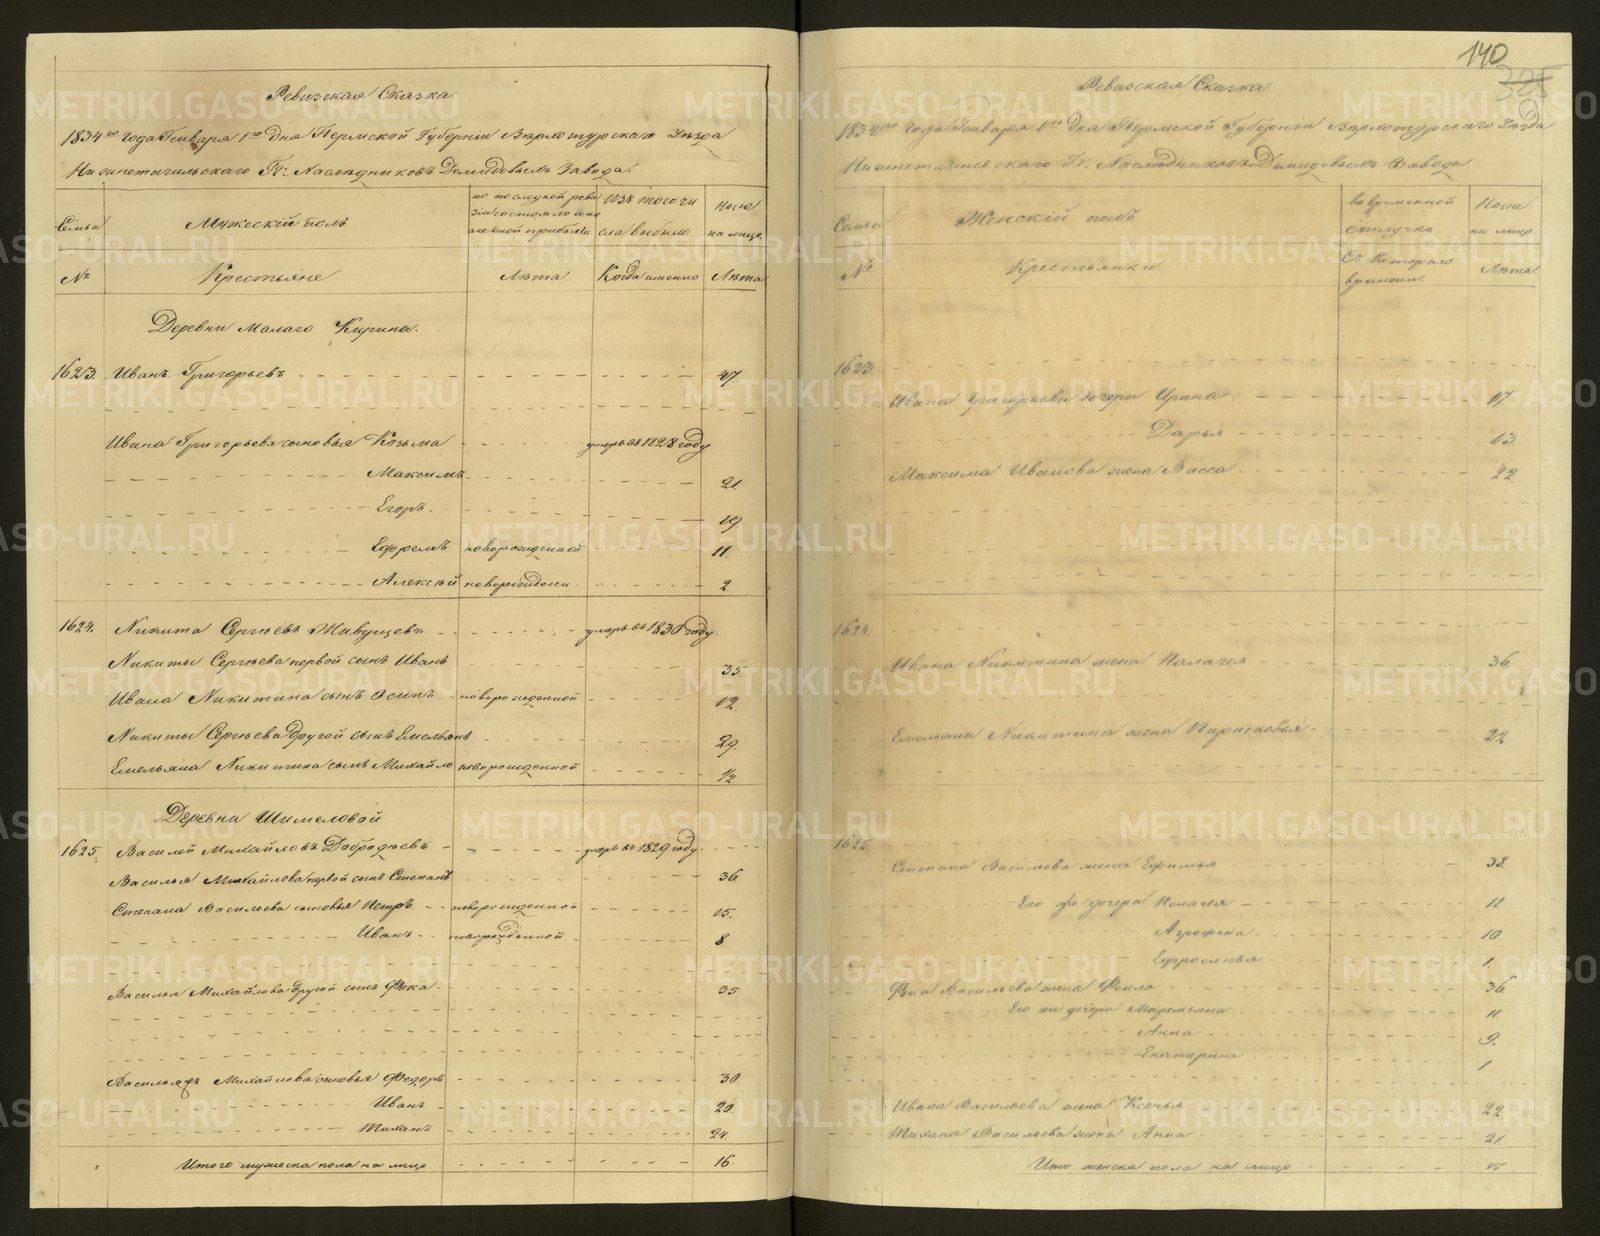 Ревизская Сказка.
1834го года Генваря 1го дня Пермской Губерніи Верхотурскаго Уезда
Нижнетагильскаго Гг. Наследниковъ Демидовыхъ Завода.
Семьи
Мужескій полъ
по последней реви
зіи состояло и по
оной прибыло
Изъ того чи
сла выбыло
Ныне
на лицо
№
Крестьяне
Лѣта
Когда именно
Лѣта
Деревни Малаго
1623. Иванъ Григорьевъ 47.
Ивана Григорьева сыновья Козьма умеръ въ 1828 году
Максимъ 21.
Егоръ 19.
Ефремъ новорожденной 11.
Алексей 2
1624. Никита Сергѣевъ Живущевъ умеръ въ 1830 году.
Никиты Сергѣева первой сынъ Иванъ 35.
Ивана Никитина сынъ Осипъ новорожденной 12.
Никиты Сергѣева другой сынъ Емельянъ 29.
Емельяна Никитина сынъ Михайло новорожденной 1/2
Деревни Шимеловой
1625. Василей Михайловъ Добродѣевъ умеръ въ 1829 году.
Василья Михайлова первой сынъ Степанъ 36
Степана Васильева сыновья Петръ новорожденной 15.
Иванъ новорожденной 8.
Василья Михайлова другой сынъ Фока 35
Василья Михайлова сыновья Федоръ 30.
Иванъ 20.
Тиханъ 24.
Итого мужеска пола на лицо 16.
140
325
Ревизская Сказка
1834го года Генваря 1го дня Пермской Губерніи Верхотурскаго Уезда
Нижнетагильскаго Гг. Наследниковъ Демидовыхъ Завода
Семьи
Женскій полъ
во временной
отлучке
Ныне
на лицо
№
Крестьянки.
Съ котораго
времени.
Лѣта
1623.
Ивана Григорьева дочери Ирина 17.
Дарья 13.
Максима Иванова жена Васса 22.
1624.
Ивана Никитина жена Палагея 36.
Емельяна Никитина жена Парасковья 22.
1625.
Степана Васильева жена Ефимья 38.
Его же дочери Палагея 11.
Агрофена 10.
Ефросинья 1.
Фоки Васильева жена Фекла 36.
Его же дочери Маремьяна 11.
Анна 9.
Екатерина 1
Ивана Васильева жена Ксенья 22
Тихана Васильева жена Анна 21.
Итого женска пола на лицо 15
METRIKI.GASO-URAL.RU